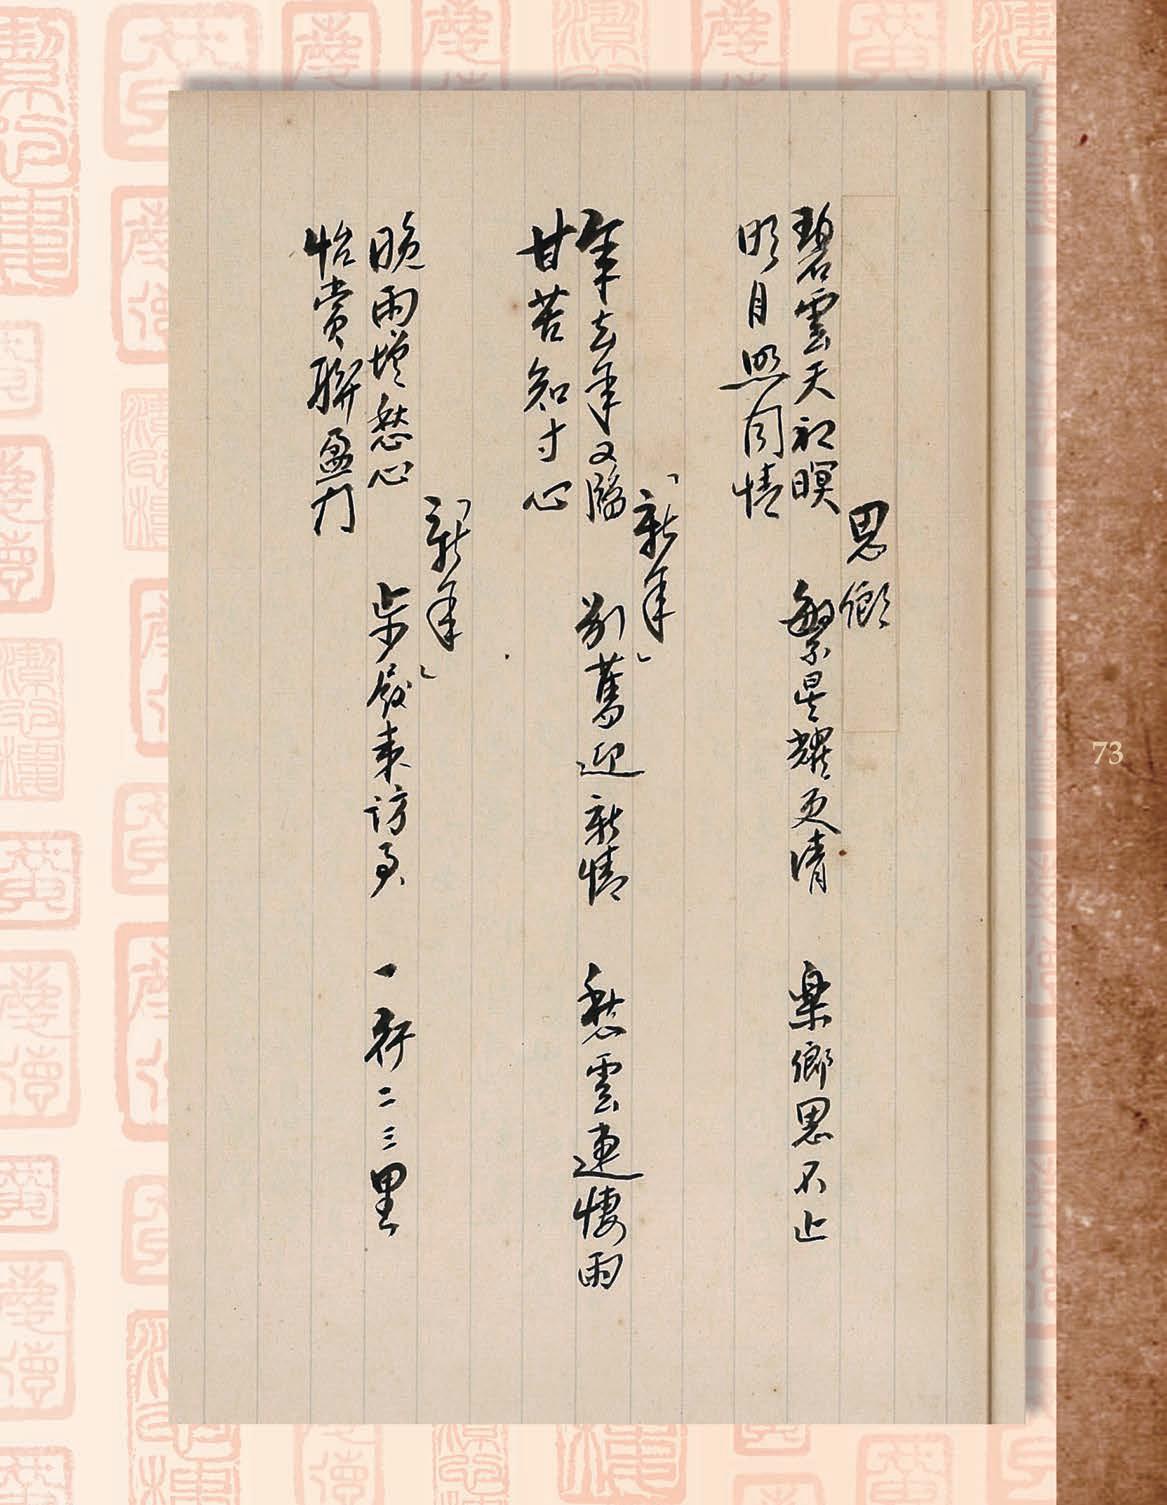 思鄉
碧雲天初暝 繁星耀更清 樂鄉思不止
明月照同情
「新年」
年去年又臨 別舊迎新情 愁雲連悽雨
甘苦知寸心
「新年」
晚雨增愁心 步屐來訪 一行二三里
怡賞聯盈
73